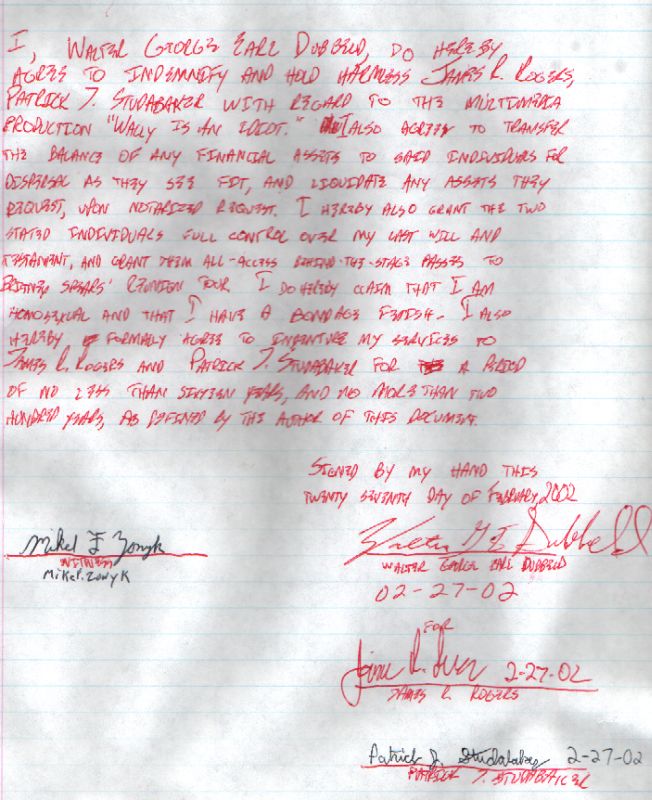 I, WALTER GEORGE EARL DUBBELD, DO HEREBY
AGREE TO INDEMNIFY AND HOLD HARMLESS JAMES R. ROGERS,
PATRICK J. STUDABAKER WITH REGARD TO THE MULTIMEDIA
PRODUCTION "WALLY IS AN IDIOT." I ALSO AGREE TO TRANSFER
THE BALANCE OF ANY FINANCIAL ASSETS TO SAID INDIVIDUALS FOR
DISPERSAL AS THEY SEE FIT, AND LIQUIDATE ANY ASSETS THEY
REQUEST, UPON NOTARIZED REQUEST. I HEREBY ALSO GRANT THE TWO
STATED INDIVIDUALS FULL CONTROL OVER MY LAST WILL AND
TESTAMENT, AND GRANT THEM ALL-ACCESS BEHIND-THE-STAGE PASSES TO
BRITNEY SPEARS' REUNION TOUR I DO HEREBY CLAIM THAT I AM
HOMOSEXUAL AND THAT I HAVE A BONDAGE FETISH. I ALSO
HEREBY, FORMALLY AGREE TO INDENTURE MY SERVICES TO
JAMES R. ROGERS AND PATRICK J. STUDABAKER FOR A PERIOD
OF NO LESS THAN SIXTEEN YEARS, AND NO MORE THAN TWO
HUNDRED YEARS, AS DEFINED BY THE AUTHOR OF THIS DOCUMENT.
SIGNED BY MY HAND THIS
TWENTY SEVENTH DAY OF FEBRUARY, 2002
Mikel F Zonyk
WITNESS
MiKeP.ZONYK
Walter G E Dubbeld
WALTER GEORGE EARL DUBBELD
02-27-02
FOR
2-27-02
JAMES R. ROGERS
Patrick J. Studabaker 2-27-02
PATRICK J. STUDABAKER